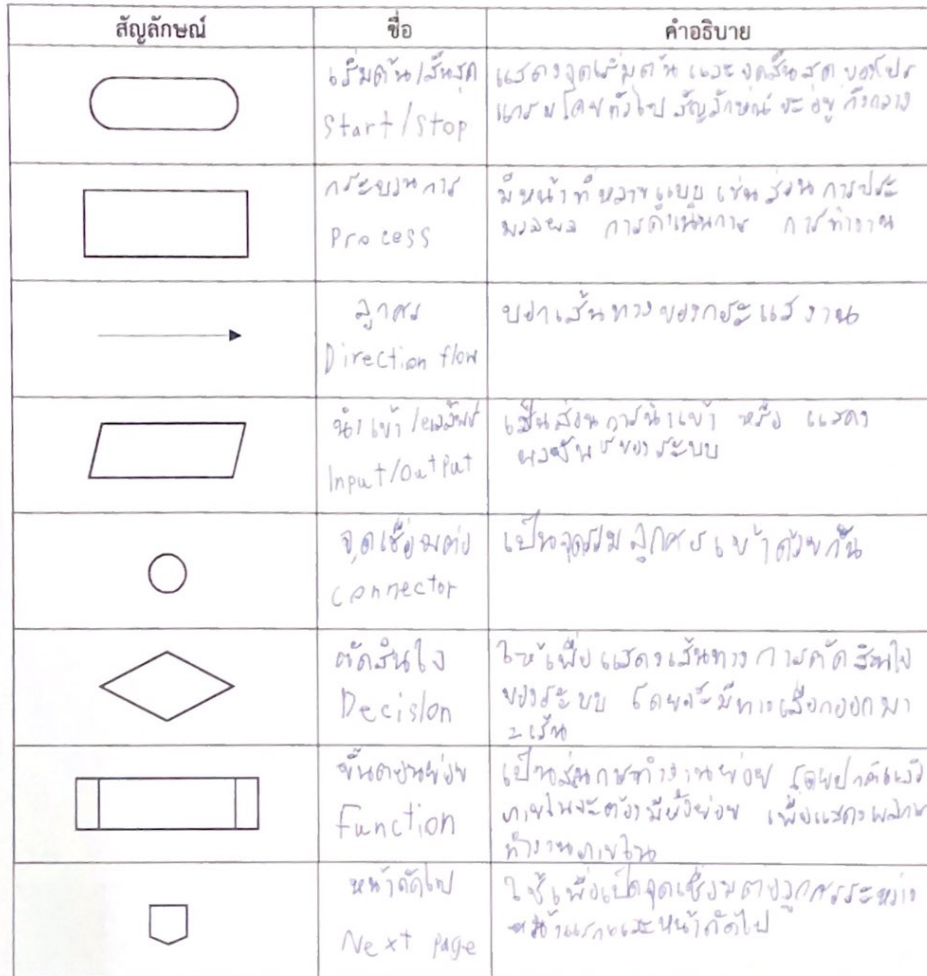 สัญลักษณ์ ชื่อ คำอธิบาย
เริ่มต้น/สิ้นสุด
Start/Stop
แสดงจุดเริ่มต้น และจุดสิ้นสุด ของโปร
แกรม โดยทั่วไป สัญลักษณ์ จะอยู่กึ่งกลาง
กระบวนการ
Process
มีหน้าที่หลายแบบ เช่นส่วน การประ
มวลผล การดำเนินการ การทำงาน
ลูกศร
Direction flow
บอกเส้นทางของกระแสงาน
นำเข้า/ผลลัพธ์
Input/Output
เป็นส่วนการนำเข้า หรือ แสดง
ผลลัพธ์ของระบบ
จุดเชื่อมต่อ
Connector
เป็นจุดรวมลูกศรเข้าด้วยกัน
ตัดสินใจ
Decision
ใช้เพื่อแสดงเส้นทางการตัดสินใจ
ของระบบ โดยจะมีทางเลือกออกมา
2 เส้น
ขั้นตอนย่อย
Function
เป็นส่วนการทำงานย่อย โดยปกติแล้ว
ภายในจะต้องมีย่อย เพื่อแสดง
ทำงานภายใน
หน้าถัดไป
Next page
ใช้เพื่อเป็นจุดเชื่อมต่อลูกศรระหว่าง
หน้าแรกและหน้าถัดไป